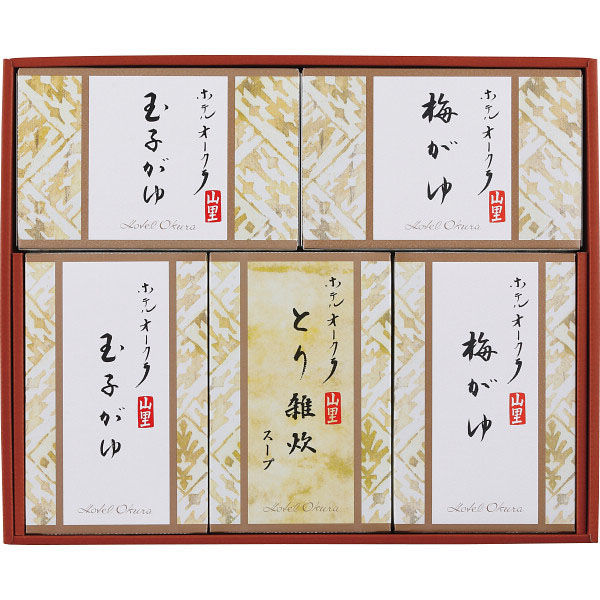 ホテルオークラ
山里
玉子がゆ
Hotel Okura
ホテルオークラ
山里
梅がゆ
Hotel Okura
ホテルオークラ
山里
玉子がゆ
Hotel Okura
ホテルオークラ
山里
とり雑炊
スープ
Hotel Okura
ホテルオークラ
山里
梅がゆ
Hotel Okura